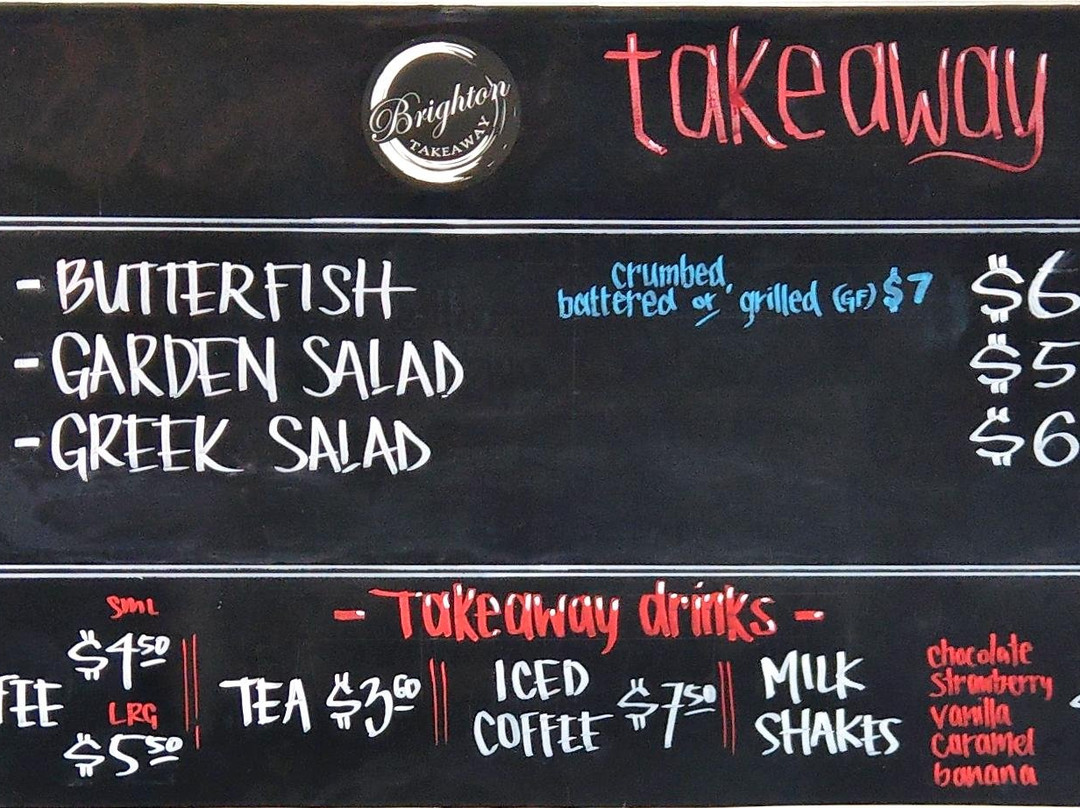 Brighton
TAKEAWAY
takeaway
- BUTTERFISH crumbed, battered or grilled (GF) $7 $6
- GARDEN SALAD $5
- GREEK SALAD $6
- Takeaway drinks -
FEE SML $4.50 LRG $5.50
TEA $3.60
ICED COFFEE $7.50
MILK SHAKES
chocolate
strawberry
vanilla
caramel
banana